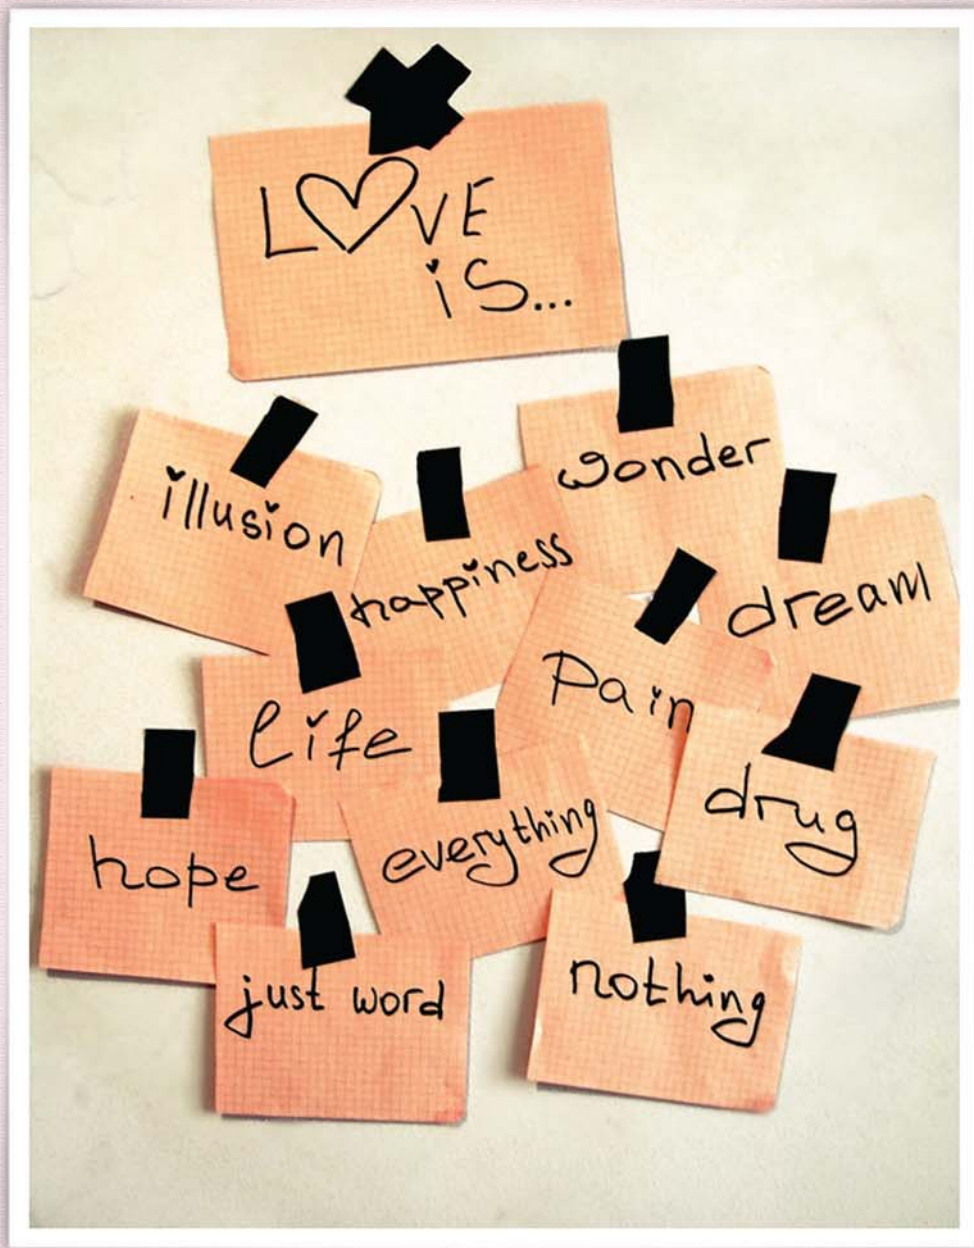 LOVE
is...
illusion
wonder
happiness
dream
life
Pain
hope
everything
drug
just word
nothing